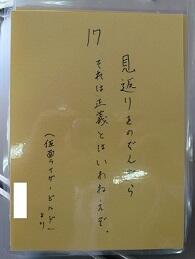 17
見返りをのぞんだら
それは正義とはいわねえぞ。
(仮面ライダービルドより)